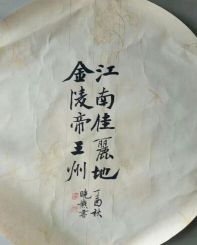 江南佳麗地
金陵帝王州
丁酉秋
曉
書